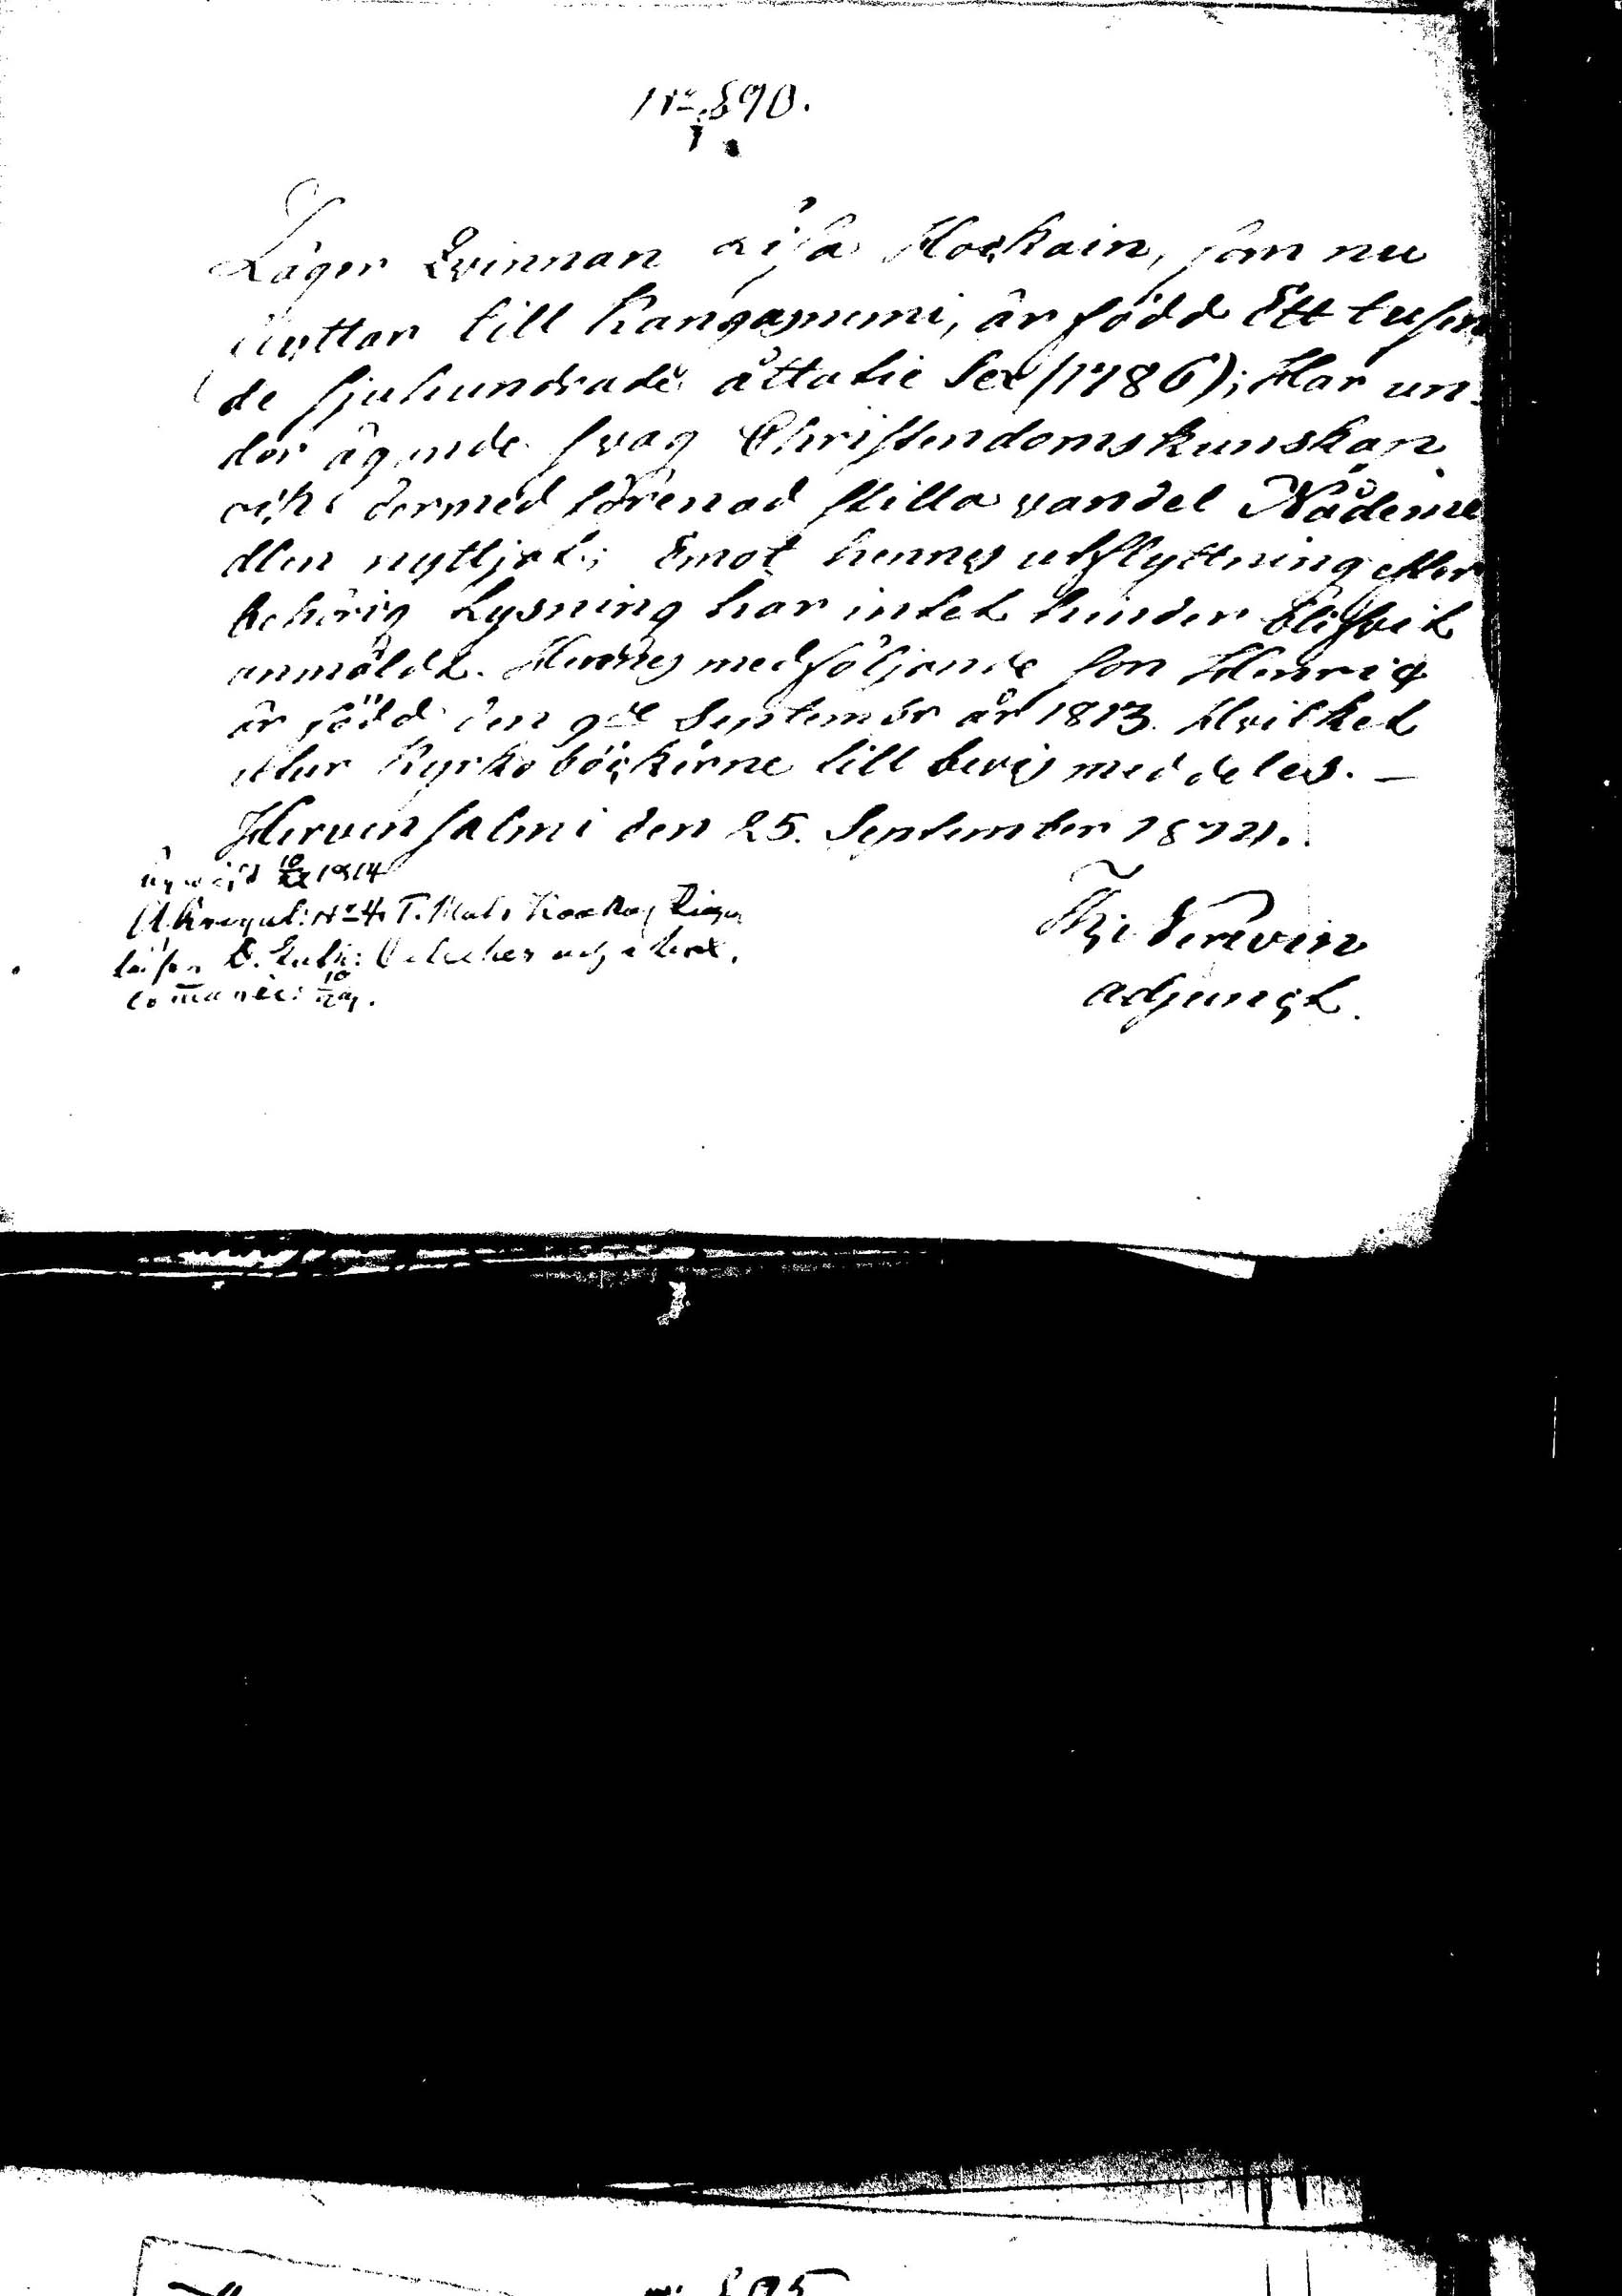 No 890.
Läger Qvinnan Lisa Hockain, som nu
flyttar till Kangasniemi, är född Ett tusen
de sjuhundrade åttatie Sex (1786); Har un-
der ägande svag Christendomskunskap
och dermed förenad stilla vandel Nådeme
dlen nyttjat; Emot hennes utflyttning efter
behörig Lysning har intet hinder blifvit
anmäldt. Hennes medföljande son Henric
är född den 9de September år 1813. Hvilket
utur Kyrkoböckerne till bevis meddeles. —
Hirvensalmi den 25. September 1814.
1814
No 4
adjunct.
No 895